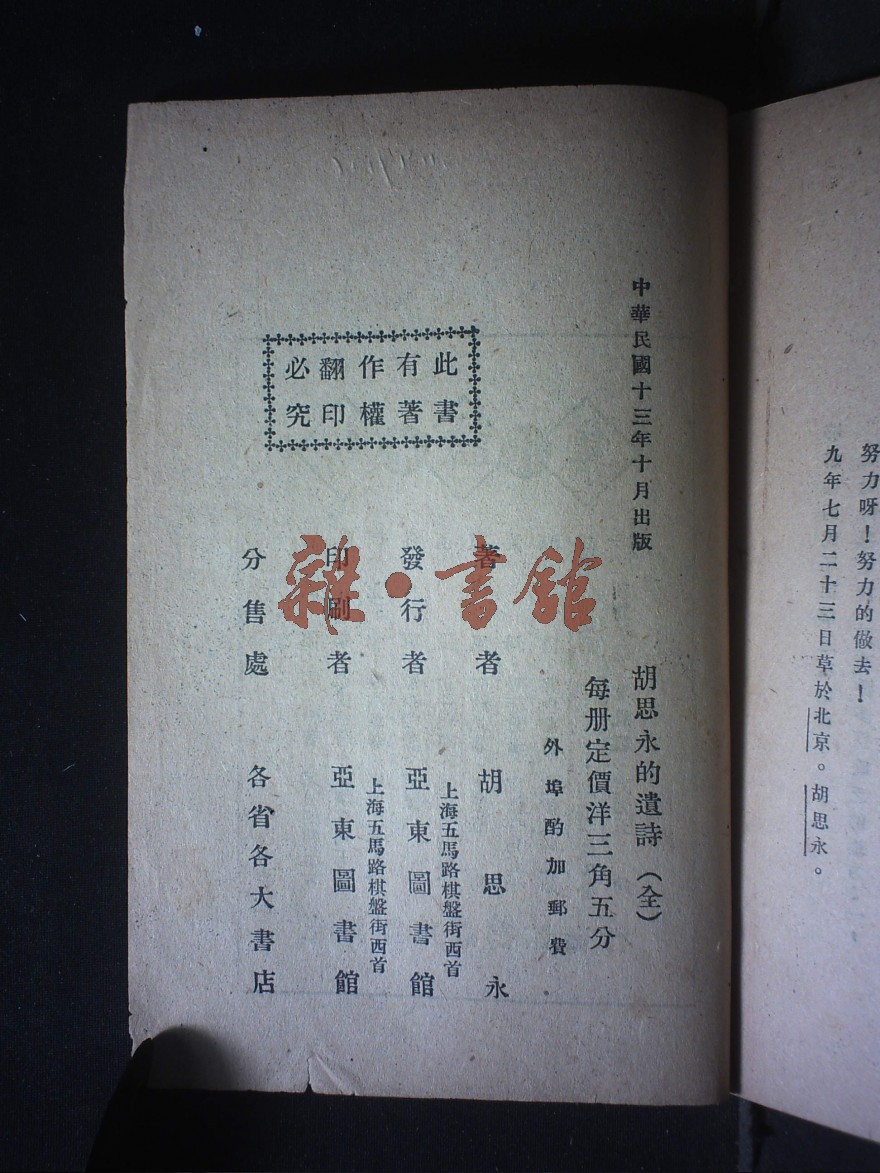 努力呀！努力的做去！
九年七月二十三日草於北京。胡思永。
中華民國十三年十月出版
胡思永的遺詩（全）
每册定價洋三角五分
外埠酌加郵費
著者　胡思永
上海五馬路棋盤街西首
發行者　亞東圖書館
上海五馬路棋盤街西首
印刷者　亞東圖書館
分售處　各省各大書店
此書
有著
作權
翻印
必究
雜·書館